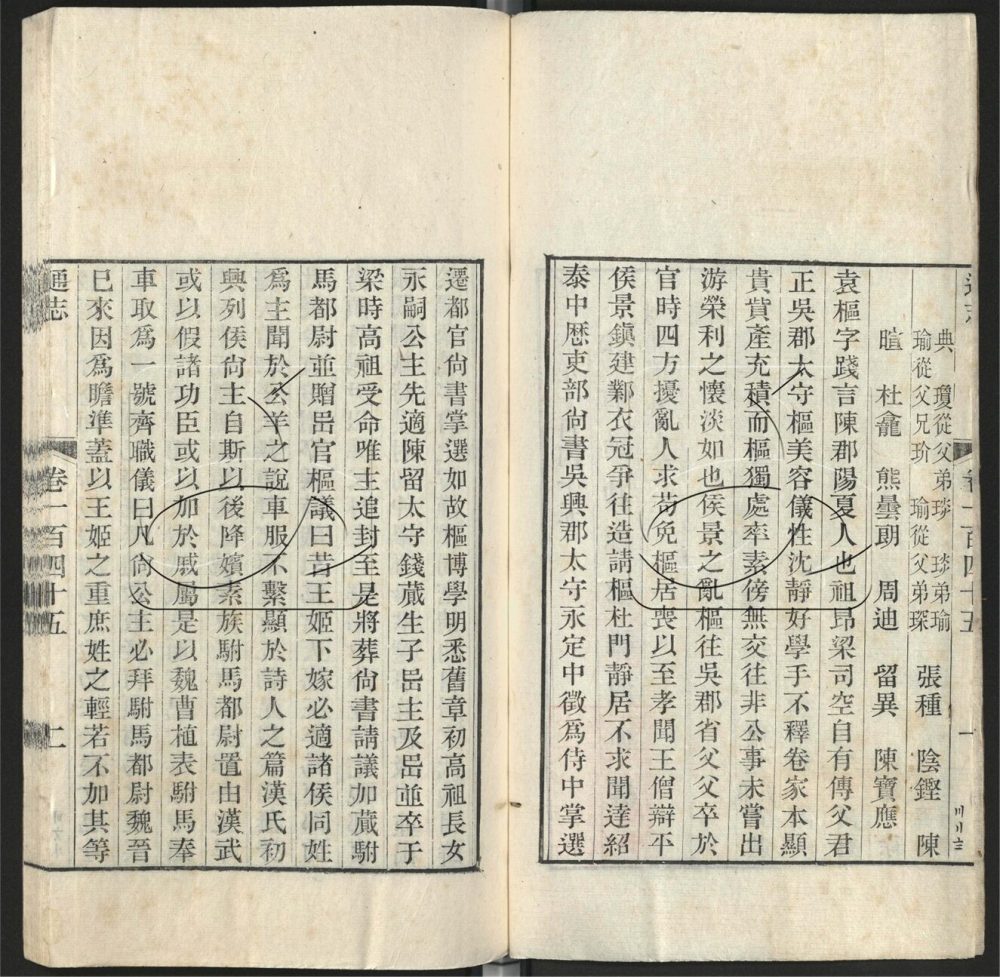 典 瓊從父弟琰 琰弟瑜 張種 陰鏗 陳
瑜從父兄玠 瑜從父弟琛
暄 杜龕 熊曇朗 周迪 留異 陳寶應
袁樞字踐言陳郡陽夏人也祖昂梁司空自有傳父君
正吳郡太守樞美容儀性沈靜好學手不釋卷家本顯
貴貲產充積而樞獨處率素傍無交往非公事未嘗出
游榮利之懷淡如也侯景之亂樞往吳郡省父父卒於
官時四方擾亂人求苟免樞居喪以至孝聞王僧辯平
侯景鎮建鄴衣冠爭往造請樞杜門靜居不求聞達紹
泰中歷吏部尚書吳興郡太守永定中徵爲侍中掌選
一
遷都官尚書掌選如故樞博學明悉舊章初高祖長女
永嗣公主先適陳留太守錢蕆生子岊主及岊並卒于
梁時高祖受命唯主追封至是將葬尚書請議加蕆駙
馬都尉並贈岊官樞議曰昔王姬下嫁必適諸侯同姓
爲主聞於公羊之說車服不繫顯於詩人之篇漢氏初
興列侯尚主自斯以後降嬪素族駙馬都尉置由漢武
或以假諸功臣或以加於戚屬是以魏曹植表駙馬奉
車取爲一號齊職儀曰凡尚公主必拜駙馬都尉魏晉
已來因爲瞻準蓋以王姬之重庶姓之輕若不加其等
通志 卷一百四十五 二